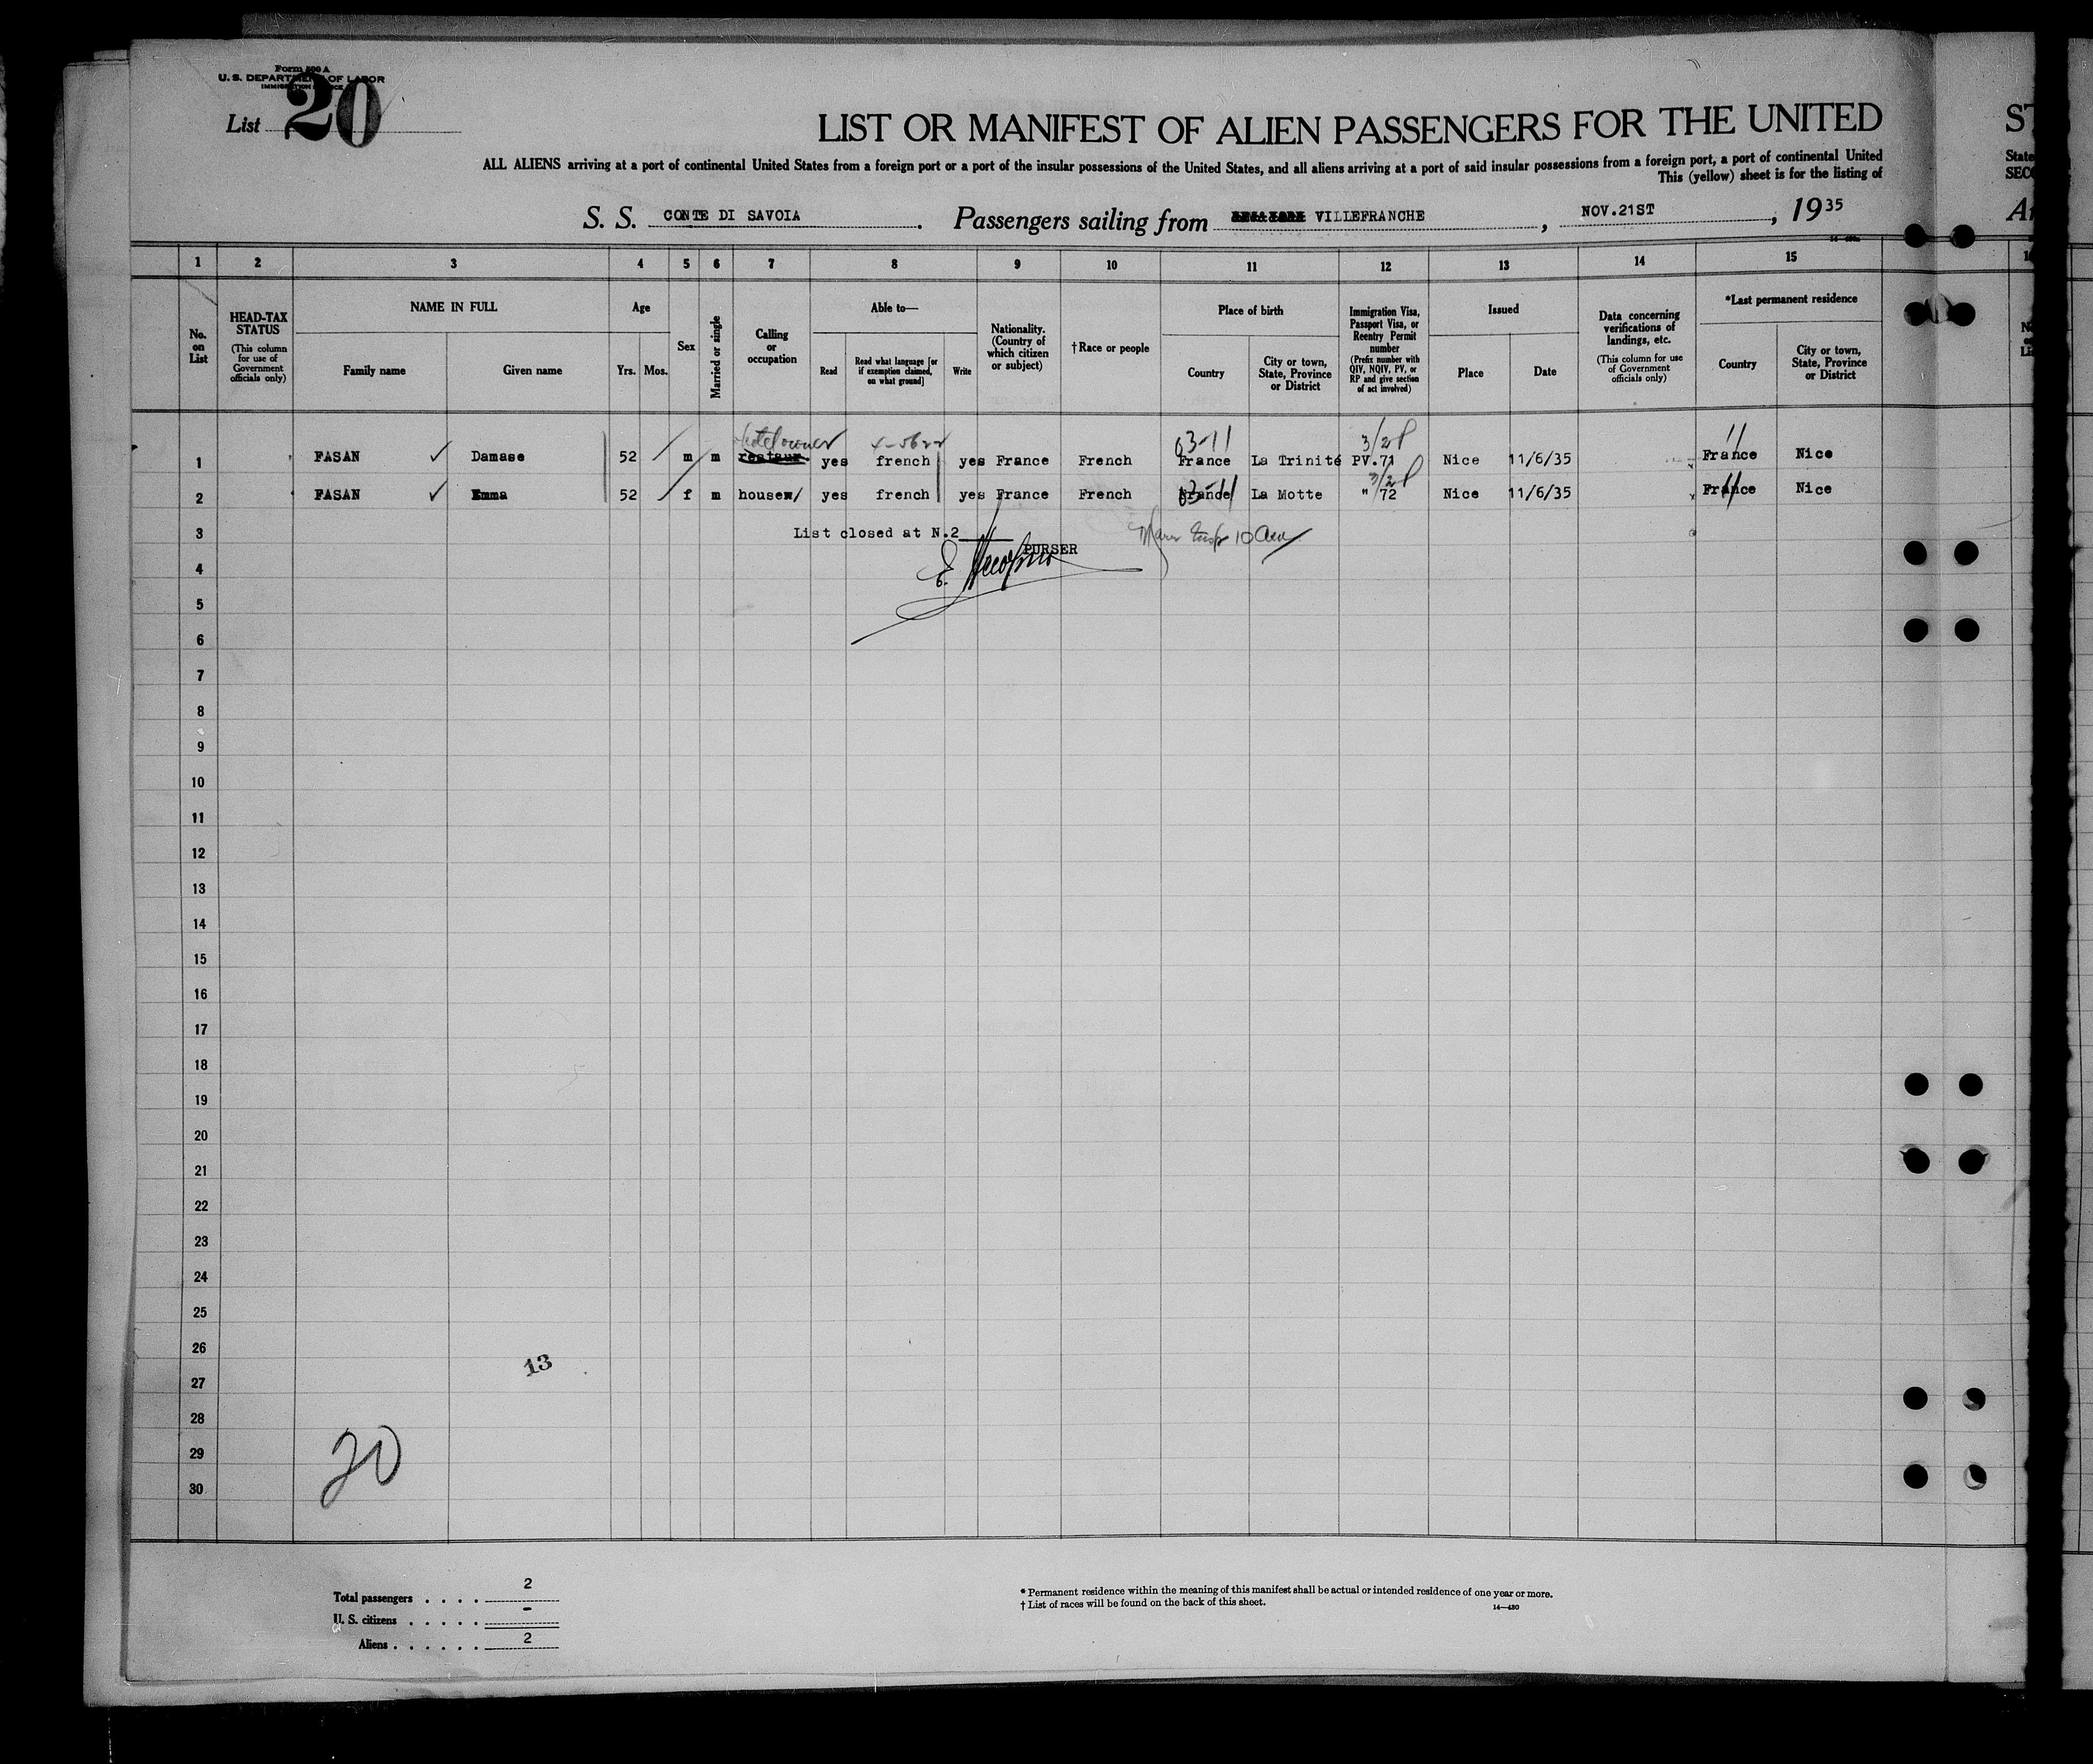 Form 500 A
U. S. DEPARTMENT OF LABOR
IMMIGRATION SERVICE
List 20
LIST OR MANIFEST OF ALIEN PASSENGERS FOR THE UNITED
ST
ALL ALIENS arriving at a port of continental United States from a foreign port or a port of the insular possessions of the United States, and all aliens arriving at a port of said insular possessions from a foreign port, a port of continental United
State
This (yellow) sheet is for the listing of
SECO
S. S. CONTE DI SAVOIA. Passengers sailing from VILLEFRANCHE, NOV.21ST, 1935
1 2 3 4 5 6 7 8 9 10 11 12 13 14 15
No. on List
HEAD-TAX STATUS
(This column for use of Government officials only)
NAME IN FULL
Family name
Given name
Age
Yrs. Mos.
Sex
Married or single
Calling or occupation
Able to—
Read
Read what language [or if exemption claimed, on what ground]
Write
Nationality. (Country of which citizen or subject)
†Race or people
Place of birth
Country
City or town, State, Province or District
Immigration Visa, Passport Visa, or Reentry Permit number
(Prefix number with QIV, NQIV, PV, or RP and give section of act involved)
Issued
Place
Date
Data concerning verifications of landings, etc.
(This column for use of Government officials only)
*Last permanent residence
Country
City or town, State, Province or District
hotel owner 03-11 3/2 11
1 FASAN ✓ Damase 52 m m restaur. yes french yes France French France La Trinité PV.71 Nice 11/6/35 France Nice
03-11 3/2 11
2 FASAN ✓ Emma 52 f m housew/ yes french yes France French France La Motte " 72 Nice 11/6/35 France Nice
3 List closed at N.2
PURSER
4
5
6
7
8
9
10
11
12
13
14
15
16
17
18
19
20
21
22
23
24
25
26
13
27
28
29
20
30
Total passengers . . . . 2
U. S. citizens . . . . . -
Aliens . . . . . . 2
* Permanent residence within the meaning of this manifest shall be actual or intended residence of one year or more.
† List of races will be found on the back of this sheet.
14—430